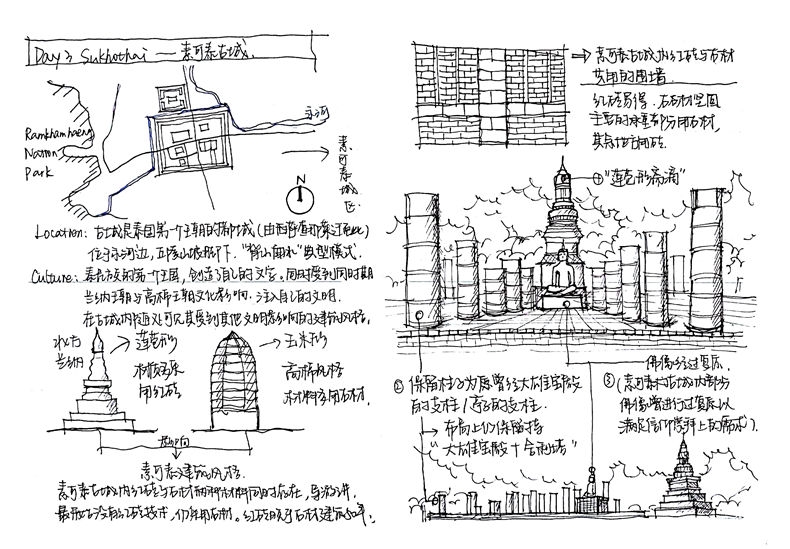 Day 3 Sukhothai — 素可泰古城.
Ramkhamhaeng
Nation
Park
永河
素可泰城区
N
Location: 古城是泰国第一个王朝的都城
位于永河边, 正房山坡脚下. "背山面水"典型模式.
Culture: 泰民族的第一个王国, 创造了自己的文字。同时受到同时期
兰纳王朝与高棉王朝文化影响, 注入自己的文明.
在古城内随处可见其受到其他文明影响后的建筑风格.
北方
兰纳
莲花形
用红砖
玉米形
高棉风格
材料多用石材.
素可泰建筑风格.
素可泰古城内红砖与石材两种材料同时存在, 导游讲.
最开始没有红砖技术, 仅采用石材。红砖晚于石材建筑50年.
素可泰古城内红砖与石材
共用的围墙.
红砖易得. 石材坚固
主要的承重部分用石材,
其它地方用砖.
① "莲花形滴"
② 保留柱子为原曾经大雄宝殿
的支柱/亭子的支柱.
布局上仍保留
"大雄宝殿+舍利塔"
佛像经过复原.
③ (素可泰古城大部分
佛像曾进行过复原以
满足信仰崇拜上的需求).